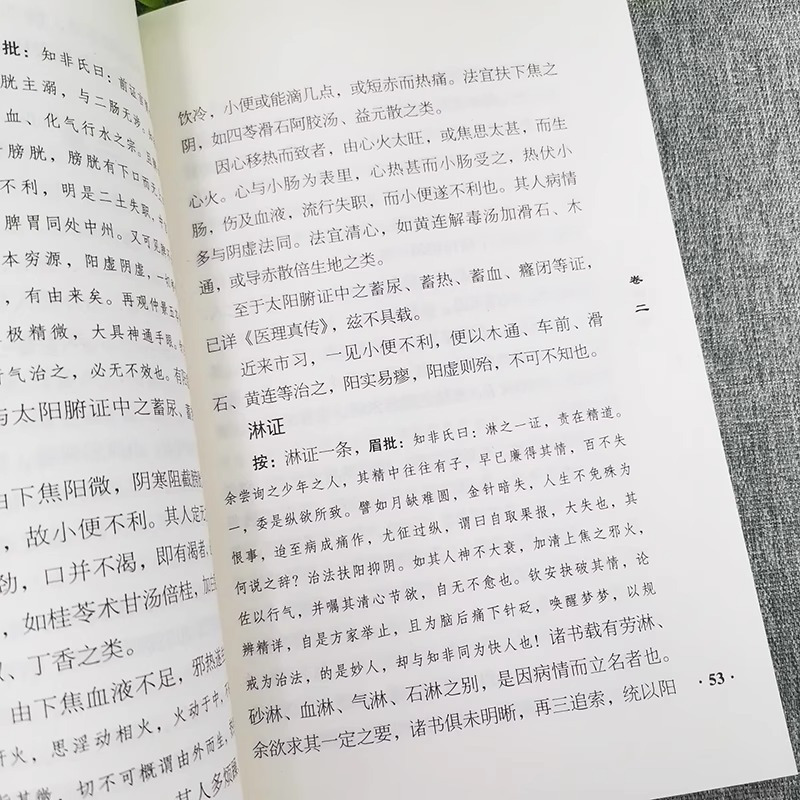 批：知非氏曰：首证
胱主弱，与二肠无涉
血、化气行水之宗。
膀胱，膀胱有下口而无上
不利，明是二土失职，
脾胃同处中州。又可见
本穷源，阳虚阴虚，一
，有由来矣。再观仲景五
极精微，大具神通手眼。
气治之，必无不效也。有
与太阳腑证中之蓄尿、蓄
由下焦阳微，阴寒阻截膀
，故小便不利。其人定
劲，口并不渴，即有渴者，
，如桂苓术甘汤倍桂，加
、丁香之类。
由下焦血液不足，邪热
肝火，思淫动相火，火动于中，
其微，切不可概谓由外而生，
其人多烦
饮冷，小便或能滴几点，或短赤而热痛。法宜扶下焦之
阴，如四苓滑石阿胶汤、益元散之类。
因心移热而致者，由心火太旺，或焦思太甚，而生
心火。心与小肠为表里，心热甚而小肠受之，热伏小
肠，伤及血液，流行失职，而小便遂不利也。其人病情
多与阴虚法同。法宜清心，如黄连解毒汤加滑石、木
通，或导赤散倍生地之类。
至于太阳腑证中之蓄尿、蓄热、蓄血、癃闭等证，
已详《医理真传》，兹不具载。
近来市习，一见小便不利，便以木通、车前、滑
石、黄连等治之，阳实易瘳，阳虚则殆，不可不知也。
淋证
按：淋证一条，眉批：知非氏曰：淋之一证，责在精道。
余尝询之少年之人，其精中往往有子，早已廉得其情，百不失
一，委是纵欲所致。譬如月缺难圆，金针暗失，人生不免殊为
恨事，迨至病成痛作，尤征过纵，谓曰自取果报，大失也，其
何说之辞？治法扶阳抑阴。如其人神不大衰，加清上焦之邪火，
佐以行气，并嘱其清心节欲，自无不愈也。钦安抉破其情，论
辨精详，自是方家举止，且为脑后痛下针砭，唤醒梦梦，以规
戒为治法，的是妙人，却与知非同为快人也！诸书载有劳淋、
砂淋、血淋、气淋、石淋之别，是因病情而立名者也。
余欲求其一定之要，诸书俱未明晰，再三追索，统以阳
卷二
·53·